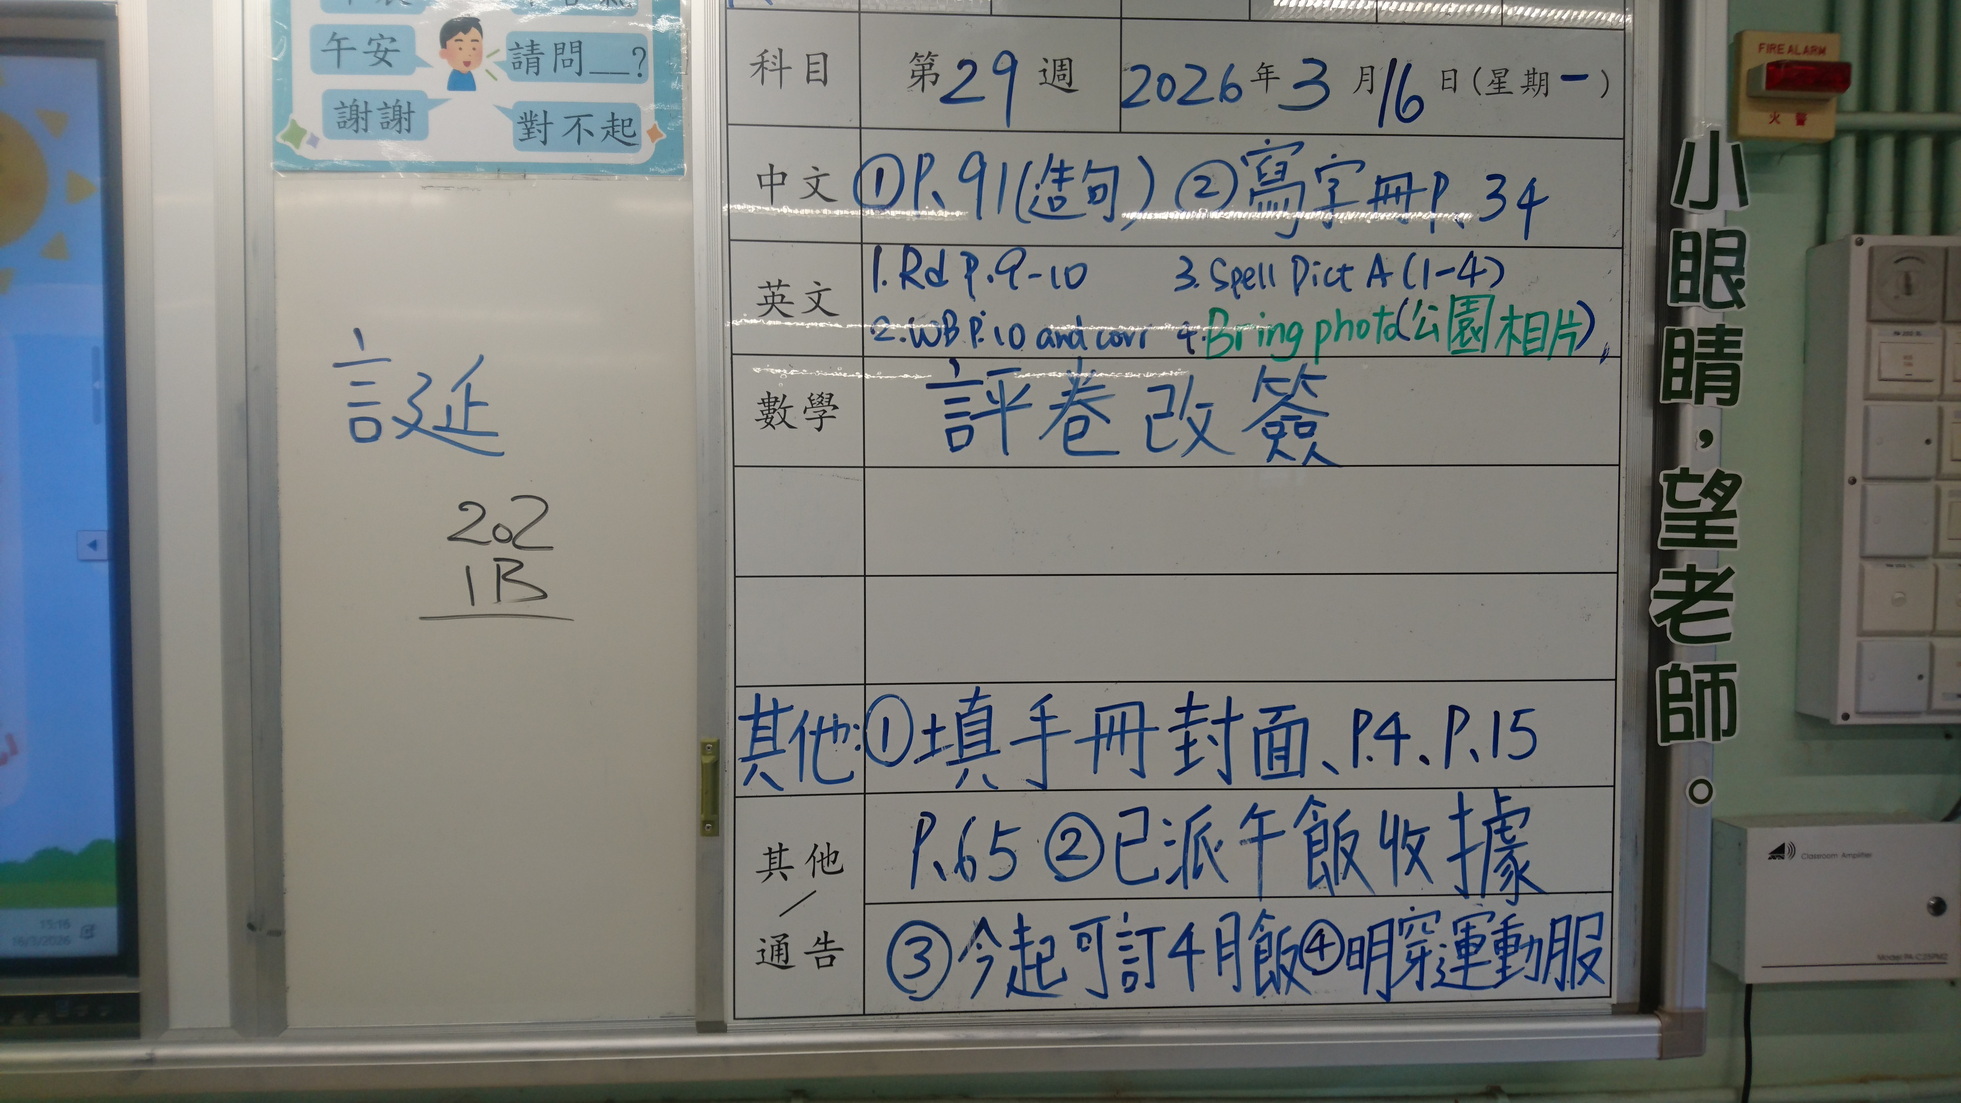 午安
請問__?
謝謝
對不起
誕
202
1B
科目 第29週 2026年3月16日(星期一)
中文 ①P.91(造句) ②寫字冊P.34
英文
1.Rd P.9-10 3.Spell Dict A (1-4)
2.WB P.10 and corr 4.Bring photo(公園相片)
數學 評卷改簽
其他:①填手冊封面、P.4、P.15
其他/通告
P.65 ②已派午飯收據
③今起可訂4月飯④明穿運動服
小眼睛，望老師。
FIRE ALARM
火警
Classroom Amplifier
15:16
16/3/2026